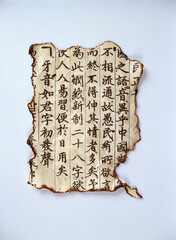 之語音異乎中國
不相流通故愚民有所欲言
而終不得伸其情者多矣予
爲此憫然新制二十八字欲
人人易習便於日用矣
ㄱ牙音如君字初發聲